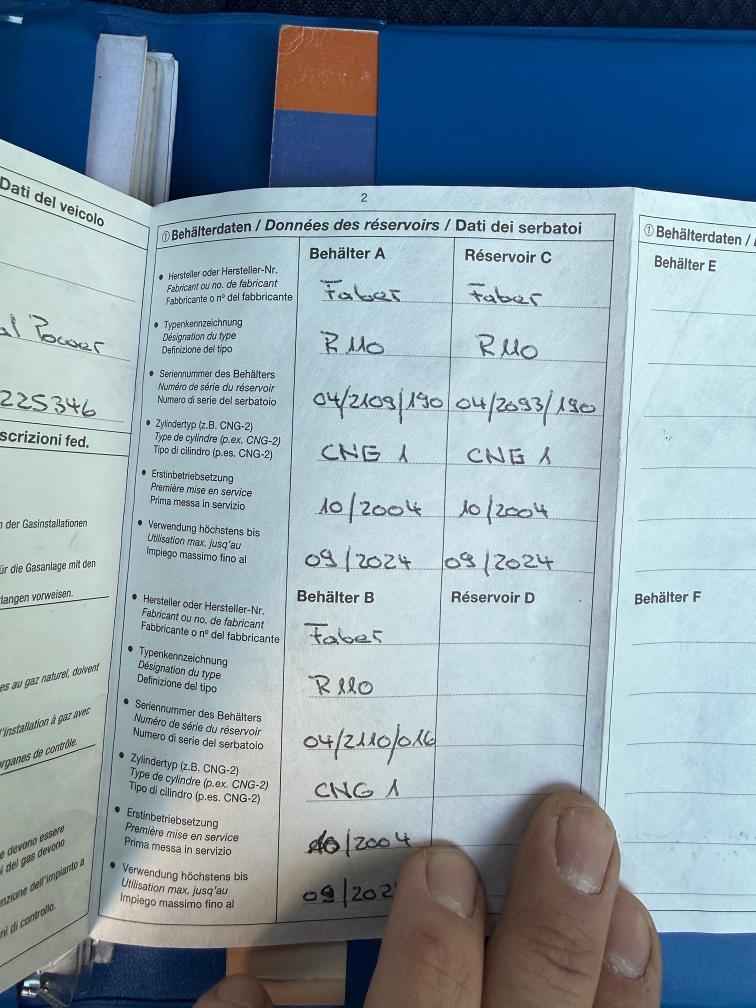 Dati del veicolo
al Power
225346
scrizioni fed.
n der Gasinstallationen
ür die Gasanlage mit den
langen vorweisen.
es au gaz naturel, doivent
l'installation à gaz avec
organes de contrôle.
e devono essere
i del gas devono
nzione dell'impianto a
ni di controllo.
2
① Behälterdaten / Données des réservoirs / Dati dei serbatoi
Behälter A Réservoir C
• Hersteller oder Hersteller-Nr.
Fabricant ou no. de fabricant
Fabbricante o n° del fabbricante
Faber Faber
• Typenkennzeichnung
Désignation du type
Definizione del tipo
R 110 R 110
• Seriennummer des Behälters
Numéro de série du réservoir
Numero di serie del serbatoio
04/2109/190 04/2093/190
• Zylindertyp (z.B. CNG-2)
Type de cylindre (p.ex. CNG-2)
Tipo di cilindro (p.es. CNG-2)
CNG 1 CNG 1
• Erstinbetriebsetzung
Première mise en service
Prima messa in servizio
10/2004 10/2004
• Verwendung höchstens bis
Utilisation max. jusqu'au
Impiego massimo fino al
09/2024 09/2024
Behälter B Réservoir D
• Hersteller oder Hersteller-Nr.
Fabricant ou no. de fabricant
Fabbricante o n° del fabbricante
Faber
• Typenkennzeichnung
Désignation du type
Definizione del tipo
R 110
• Seriennummer des Behälters
Numéro de série du réservoir
Numero di serie del serbatoio
04/2110/016
• Zylindertyp (z.B. CNG-2)
Type de cylindre (p.ex. CNG-2)
Tipo di cilindro (p.es. CNG-2)
CNG 1
• Erstinbetriebsetzung
Première mise en service
Prima messa in servizio
10/2004
• Verwendung höchstens bis
Utilisation max. jusqu'au
Impiego massimo fino al
09/202
① Behälterdaten /
Behälter E
Behälter F